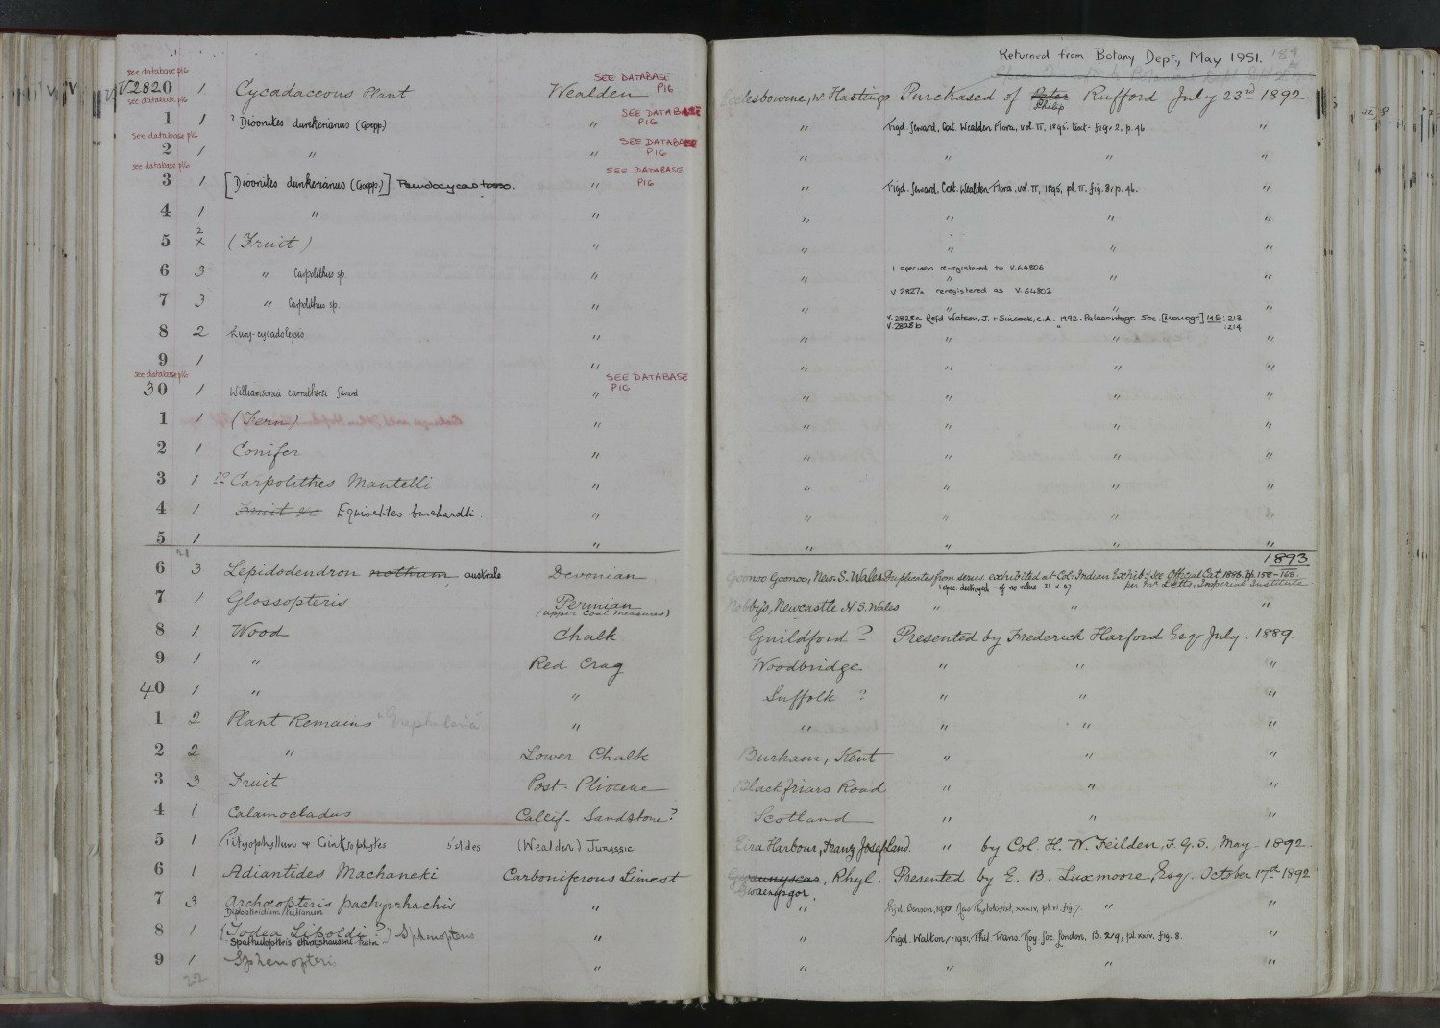 Returned from Botany Dept, May 1951.
see database p16
V.2820 1 Cycadaceous Plant Wealden SEE DATABASE P16 Ecclesbourne, nr Hastings Purchased of Peter Philip Rufford July 23rd 1892
see database p16
1 1 ? Dioonites dunkerianus (Goepp.) " SEE DATABASE P16 " Figd. Seward, Cat. Wealden Flora, vol. II, 1895. text-fig. 2, p. 46 "
see database p16
2 1 " " SEE DATABASE P16 " " " "
see database p16
3 1 [Dioonites dunkerianus (Goepp.)] " SEE DATABASE P16 " Figd. Seward, Cat. Wealden Flora, vol. II, 1895, pl. II. fig. 8, p. 46. "
4 1 " " " " " "
5 2 x (Fruit) " " " " "
6 3 " Carpolithus sp. " " 1 specimen re-registered to V.64806 " " "
7 3 " Carpolithus sp. " " V 2827a reregistered as V. 64802 " "
V.2828a Refd Watson, J. & Sincock, C.A. 1992. Palaeontogr. Soc. [Monogr] 145: 213
V.2828b " :214
8 2 " " " " "
9 1 " " " " "
see database p16
30 1 Williamsonia carruthersi Seward " SEE DATABASE P16 " " " "
1 1 (Fern) " " " " "
2 1 Conifer " " " " "
3 1 Carpolithes Mantelli " " " " "
4 1 Fruit &c Equisetites burchardti. " " " " "
5 1 " " " " "
21 1893
6 3 Lepidodendron nothum australe Devonian Goonoo Goonoo, New S. Wales Duplicates from series exhibited at Col: Indian Exhib: See Official Cat. 1886. pp. 158-168.
per Mr Letts, Imperial Institute
7 1 Glossopteris Permian (upper coal measures) Nobbys, Newcastle N.S. Wales " " "
8 1 Wood Chalk Guildford ? Presented by Frederick Harford Esq July. 1889.
9 1 " Red Crag Woodbridge " " "
40 1 " " Suffolk ? " " "
1 2 Plant Remains " " " " "
2 2 " Lower Chalk Burham, Kent " " "
3 3 Fruit Post-Pliocene Blackfriars Road " " "
4 1 Calamocladus Callif- Sandstone? Scotland " " "
5 1 Pityophyllum & Ginkgophytes (Wealden) Jurassic Eira Harbour, Franz Josef land. " by Col. H. W. Feilden, F.G.S. May 1892.
6 1 Adiantides Machaneki Carboniferous Limest , Rhyl. Presented by E. B. Luxmoore, Esq. October 17th 1892
7 3 Archæopteris pachyrrhachis " "
8 1 (Todea Lipoldi ?) Sphenopteris " " Figd. Walton, 1931, Phil. Trans. Roy. Soc. London, B. 219, pl. xxiv. fig. 8. "
9 1 Sphenopteris " " " " "
22